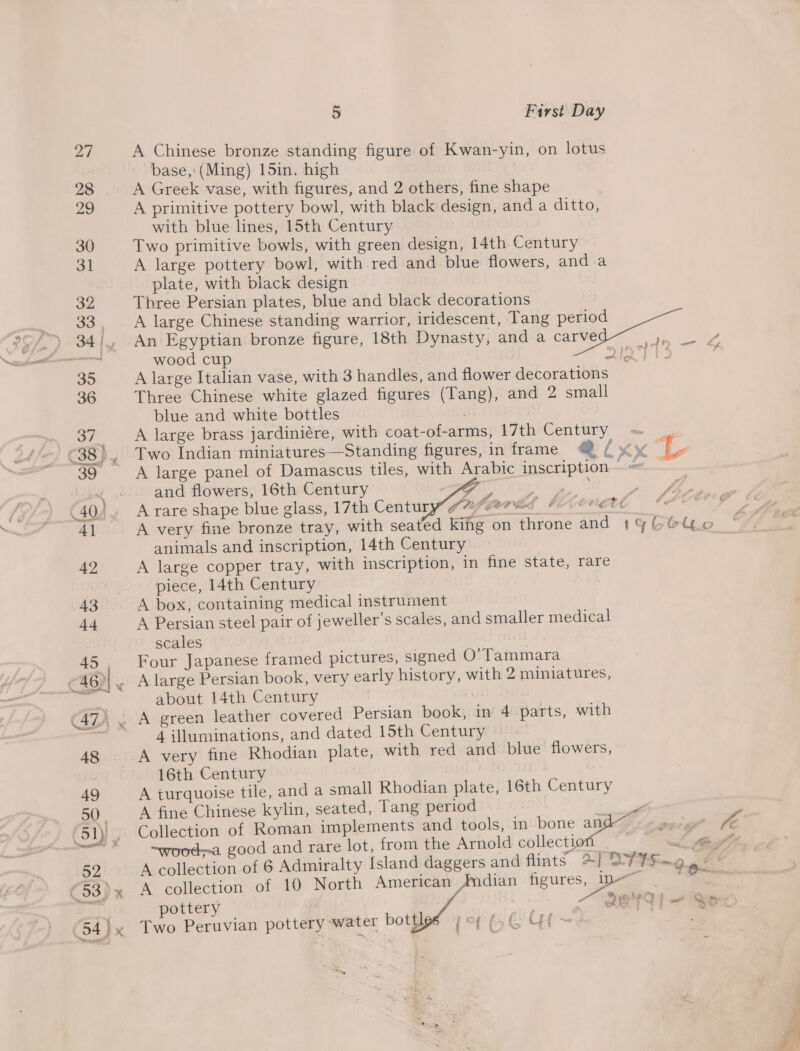 5 First Day
27 A Chinese bronze standing figure of Kwan-yin, on lotus
base, (Ming) 15in. high
28 A Greek vase, with figures, and 2 others, fine shape
29 A primitive pottery bowl, with black design, and a ditto,
with blue lines, 15th Century
30 Two primitive bowls, with green design, 14th Century
31 A large pottery bowl, with red and blue flowers, and a
plate, with black design
32 Three Persian plates, blue and black decorations
33 A large Chinese standing warrior, iridescent, Tang period
34 An Egyptian bronze figure, 18th Dynasty, and a carved
wood cup
35 A large Italian vase, with 3 handles, and flower decorations
36 Three Chinese white glazed figures (Tang), and 2 small
blue and white bottles
37 A large brass jardiniére, with coat-of-arms, 17th Century
38 Two Indian miniatures—Standing figures, in frame
39 A large panel of Damascus tiles, with Arabic inscription
and flowers, 16th Century
40 A rare shape blue glass, 17th Century
41 A very fine bronze tray, with seated king on throne and
animals and inscription, 14th Century
42 A large copper tray, with inscription, in fine state, rare
piece, 14th Century
43 A box, containing medical instrument
44 A Persian steel pair of jeweller's scales, and smaller medical
scales
45 Four Japanese framed pictures, signed O'Tammara
46 A large Persian book, very early history, with 2 miniatures,
about 14th Century
47 A green leather covered Persian book, in 4 parts, with
4 illuminations, and dated 15th Century
48 A very fine Rhodian plate, with red and blue flowers,
16th Century
49 A turquoise tile, and a small Rhodian plate, 16th Century
50 A fine Chinese kylin, seated, Tang period
51 Collection of Roman implements and tools, in bone and
wood, a good and rare lot, from the Arnold collection
52 A collection of 6 Admiralty Island daggers and flints
53 A collection of 10 North American Indian figures, in
pottery
54 Two Peruvian pottery water bottles